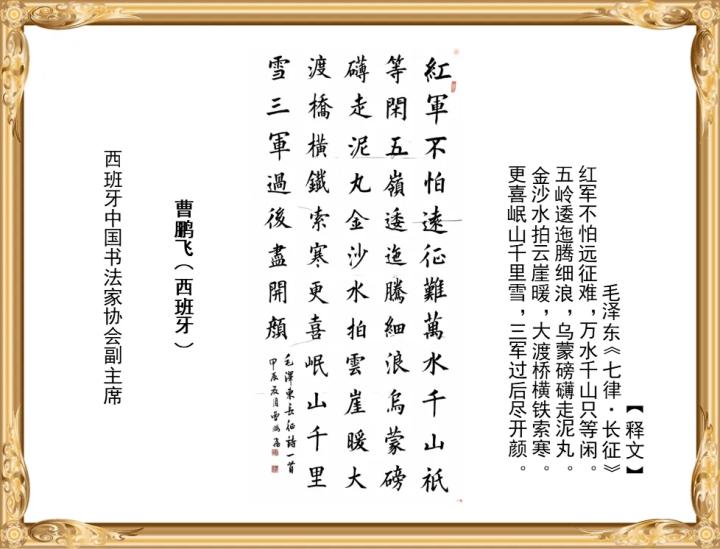 【释文】
毛泽东《七律·长征》
红军不怕远征难，万水千山只等闲。
五岭逶迤腾细浪，乌蒙磅礴走泥丸。
金沙水拍云崖暖，大渡桥横铁索寒。
更喜岷山千里雪，三军过后尽开颜。
紅軍不怕遠征難萬水千山祇
等閑五嶺逶迤騰細浪烏蒙磅
礴走泥丸金沙水拍雲崖暖大
渡橋橫鐵索寒更喜岷山千里
雪三軍過後盡開顏
毛澤東長征詩一首
甲辰夏月曹鵬飛
曹鹏飞（西班牙）
西班牙中国书法家协会副主席